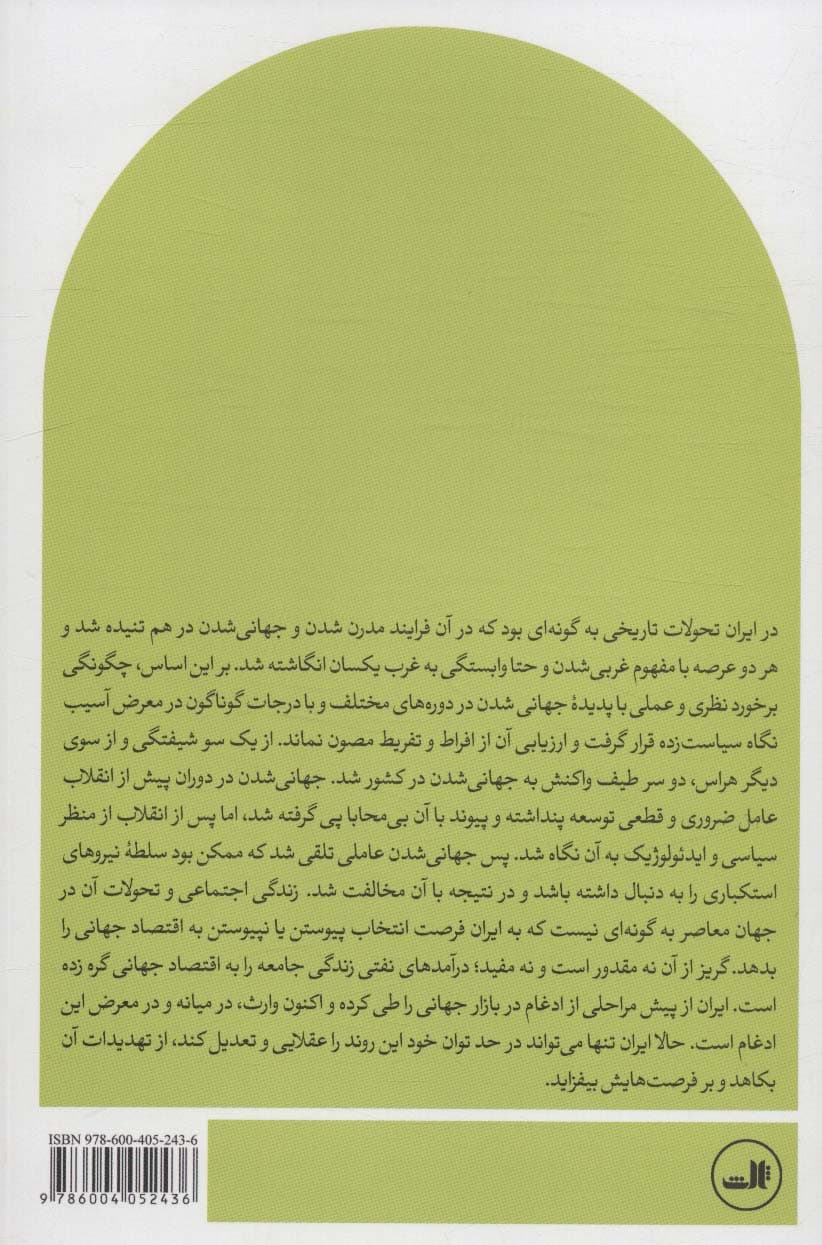 در ایران تحولات تاریخی به گونه‌ای بود که در آن فرایند مدرن شدن و جهانی‌شدن در هم تنیده شد و
هر دو عرصه با مفهوم غربی‌شدن و حتا وابستگی به غرب یکسان انگاشته شد. بر این اساس، چگونگی
برخورد نظری و عملی با پدیدهٔ جهانی شدن در دوره‌های مختلف و با درجات گوناگون در معرض آسیب
نگاه سیاست‌زده قرار گرفت و ارزیابی آن از افراط و تفریط مصون نماند. از یک سو شیفتگی و از سوی
دیگر هراس، دو سر طیف واکنش به جهانی‌شدن در کشور شد. جهانی‌شدن در دوران پیش از انقلاب
عامل ضروری و قطعی توسعه پنداشته و پیوند با آن بی‌محابا پی گرفته شد، اما پس از انقلاب از منظر
سیاسی و ایدئولوژیک به آن نگاه شد. پس جهانی‌شدن عاملی تلقی شد که ممکن بود سلطهٔ نیروهای
استکباری را به دنبال داشته باشد و در نتیجه با آن مخالفت شد. زندگی اجتماعی و تحولات آن در
جهان معاصر به گونه‌ای نیست که به ایران فرصت انتخاب پیوستن یا نپیوستن به اقتصاد جهانی را
بدهد. گریز از آن نه مقدور است و نه مفید؛ درآمدهای نفتی زندگی جامعه را به اقتصاد جهانی گره زده
است. ایران از پیش مراحلی از ادغام در بازار جهانی را طی کرده و اکنون وارث، در میانه و در معرض این
ادغام است. حالا ایران تنها می‌تواند در حد توان خود این روند را عقلایی و تعدیل کند، از تهدیدات آن
بکاهد و بر فرصت‌هایش بیفزاید.
ISBN 978-600-405-243-6
9 786004 052436
ثالث